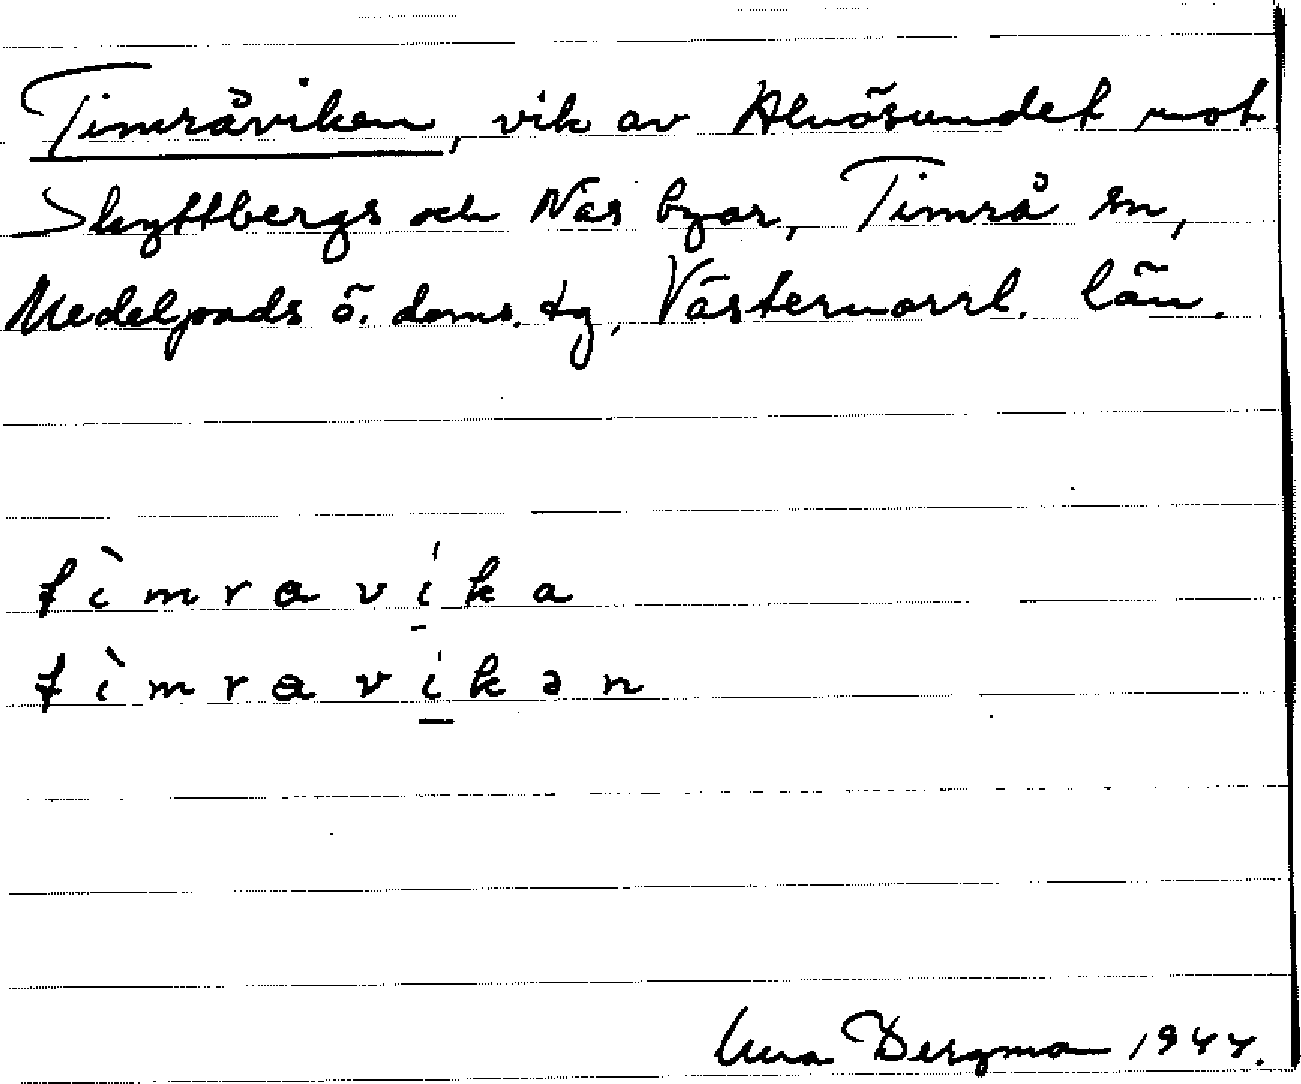 Timråviken, vik av Alnösundet mot
Skyttbergs och Näs byar, Timrå sn,
Medelpads ö. doms. tg, Västernorrl. län.
tìmravíka
tìmravíkən
Bergman 1944.